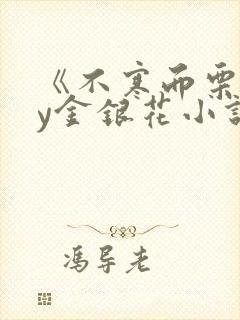 《不寒而栗
y金银花小说
冯导老